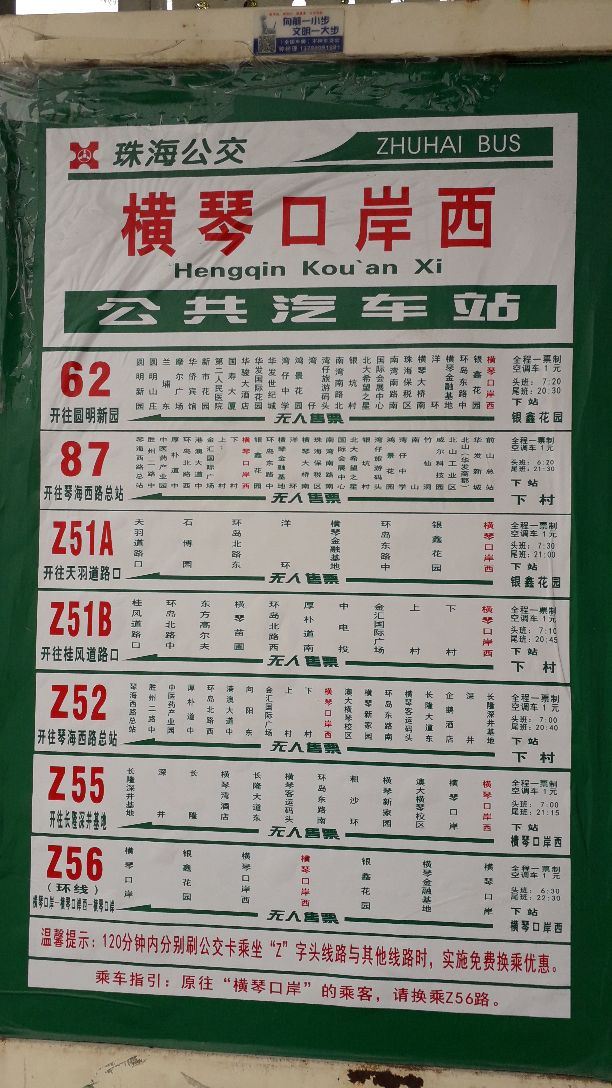 向前一小步
文明一大步
珠海公交
ZHUHAI BUS
横琴口岸西
Hengqin Kou`an Xi
公共汽车站
62
开往圆明新园
圆明新园 圆明山庄 兰埔东 摩尔广场 华侨宾馆 新市花园 第二人民医院 国寿大厦 华骏大酒店 华发国际花园 华发世纪城 湾仔中学 鸿景花园 湾仔 湾仔旅游码头 南湾南路北 银坑村 北大希望之星 国际会展中心 南湾南路南 珠海保税区 横琴大桥南 洋环 横琴金融基地 环岛东路中 银鑫花园 横琴口岸西
无人售票
全程一票制
空调车1元
头班: 7:20
尾班: 20:30
下 站
银鑫花园
87
开往琴海西路总站
琴海西路总站 胜州二路中 中医药产业园 厚朴道中 环岛北路西 港澳大道中 金汇国际广场 上村 下村 横琴口岸西 银鑫花园 环岛东路中 横琴金融基地 洋环 横琴大桥南 珠海保税区 南湾南路南 国际会展中心 北大希望之星 银坑村 湾仔旅游码头 鸿景花园 湾仔中学 南山 竹仙洞 威尔科技园 北山工业区 北山(华发商都) 华发新城 前山总站
无人售票
全程一票制
空调车1元
头班: 6:20
尾班: 21:30
下 站
下 村
Z51A
开往天羽道路口
天羽道路口 石博园 环岛北路东 洋环 横琴金融基地 环岛东路中 银鑫花园 横琴口岸西
无人售票
全程一票制
空调车1元
头班: 7:30
尾班: 21:00
下 站
银鑫花园
Z51B
开往桂风道路口
桂风道路口 环岛北路中 东方高尔夫 横琴苗圃 环岛北路西 厚朴道南 中电投 金汇国际广场 上村 下村 横琴口岸西
无人售票
全程一票制
空调车1元
头班: 7:10
尾班: 20:45
下 站
下 村
Z52
开往琴海西路总站
琴海西路总站 胜州二路中 中医药产业园 厚朴道中 环岛北路西 港澳大道中 向阳东 金汇国际广场 上村 下村 横琴口岸西 澳大横琴校区 横琴新家园 环岛东路南 横琴客运码头 长隆大道东 企鹅酒店 深井 长隆深井基地
无人售票
全程一票制
空调车1元
头班: 7:00
尾班: 20:40
下 站
下 村
Z55
开往长隆深井基地
长隆深井基地 深井 长隆 横琴湾酒店 长隆大道东 横琴客运码头 环岛东路南 粗沙环 横琴新家园 澳大横琴校区 横琴口岸 横琴口岸西
无人售票
全程一票制
空调车1元
头班: 7:00
尾班: 21:15
下 站
横琴口岸西
Z56
(环线)
横琴口岸—横琴口岸西—横琴口岸
横琴口岸 银鑫花园 横琴口岸西 横琴口岸西 银鑫花园 横琴金融基地 横琴口岸
无人售票
全程一票制
空调车1元
头班: 6:30
尾班: 22:30
下 站
横琴口岸西
温馨提示：120分钟内分别刷公交卡乘坐“Z”字头线路与其他线路时，实施免费换乘优惠。
乘车指引：原往“横琴口岸”的乘客，请换乘Z56路。